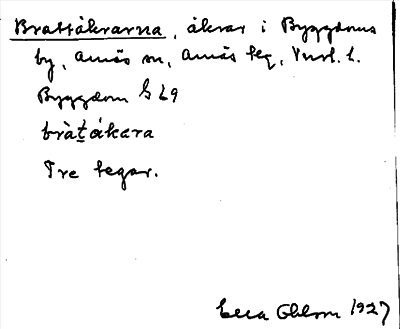 Brattåkrarna, åkrar i Byggdoms
by, Amäs sn, Amäs tg, Vsrl. l.
Byggdom G 29
bràt̠åkara
Tre tegar.
Ella Ohlson 1927